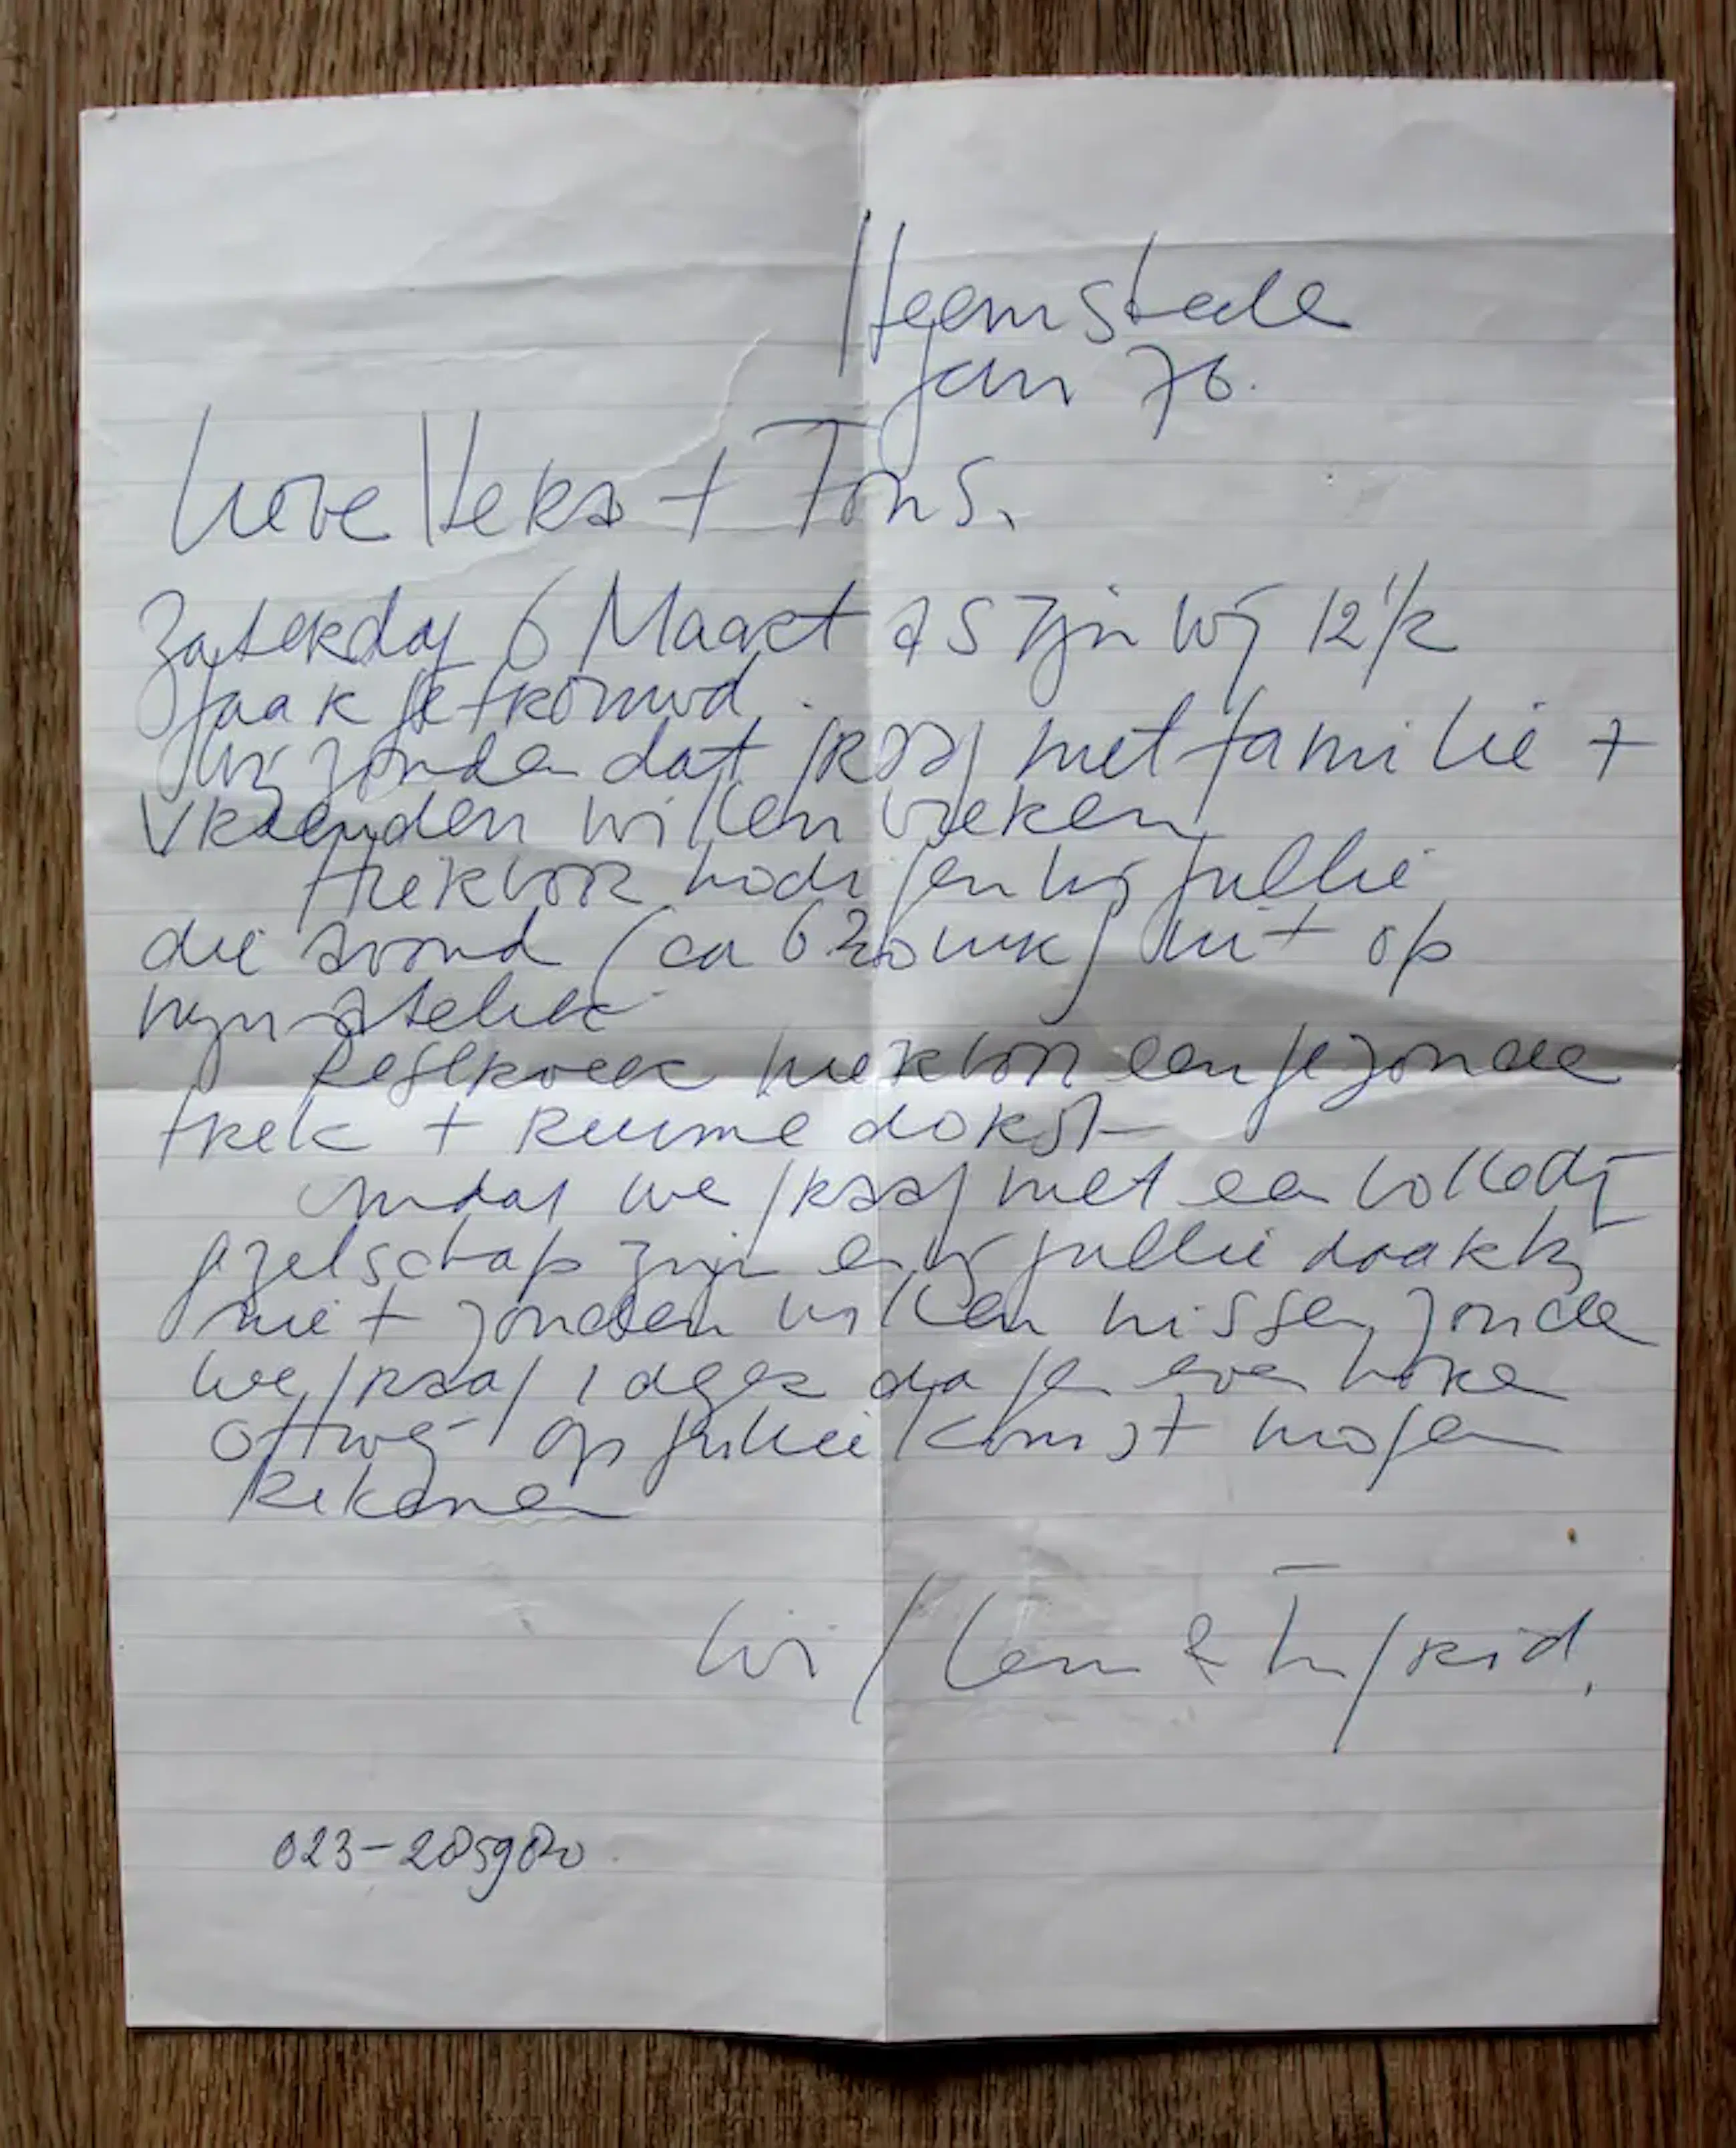 Heemstede
Jan 76.
Lieve Hera + Fons.
Zaterdag 6 Maart as zijn wij 12 1/2
jaar getrouwd.
Wij zouden dat graag met familie +
vrienden willen vieren
Hiervoor nodigen wij jullie
die avond (ca 6 30 uur) uit op
mijn atelier
Reserveer hiervoor een gezonde
trek + ruime dorst
Omdat we graag met een volledig
gezelschap zijn en wij jullie daarbij
niet zouden willen missen, zouden
we graag 10 dagen even horen
of wij op jullie komst mogen
rekenen
Willem & Ingrid,
023-285980